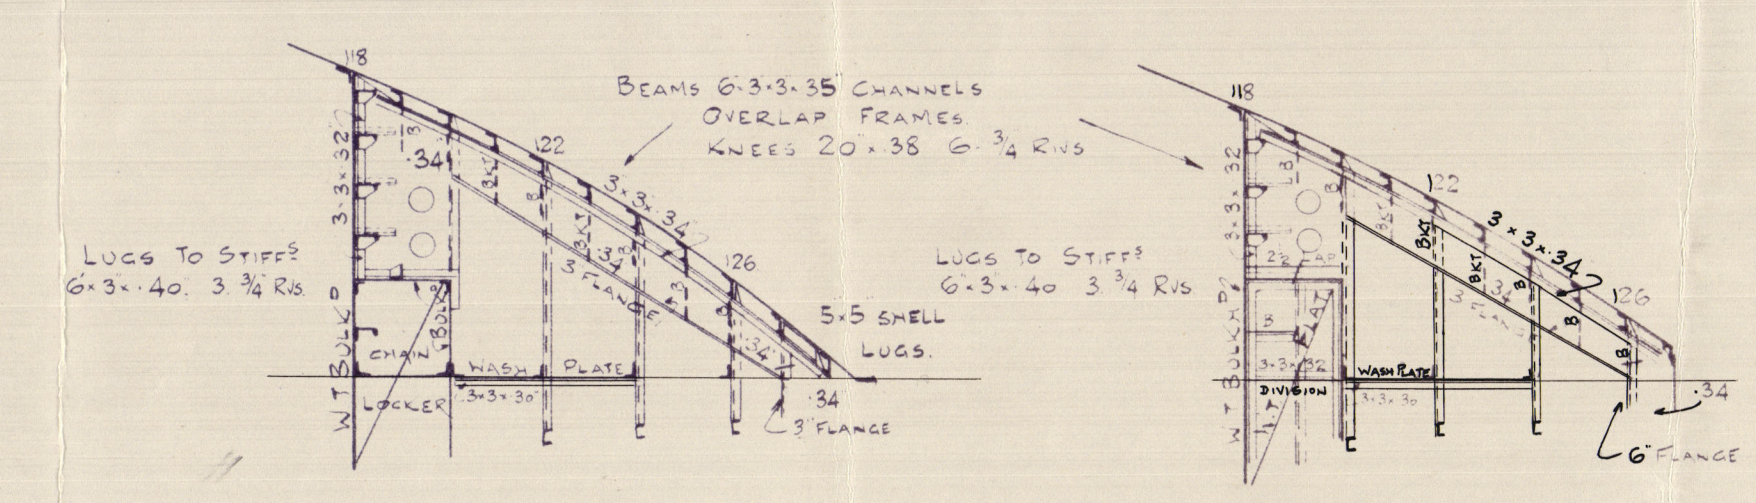 118
BEAMS 6·3×3×·35 CHANNELS
OVERLAP FRAMES.
KNEES 20"×·38 6·3/4 RIVS
122
3·3×32
·34
B
BKT
B
3×3×·34
BKT
·34
B
3" FLANGE
B
126
B
LUGS TO STIFFS
6"×3"×·40" 3·3/4 RVS.
5×5 SHELL
LUGS.
W T BULKD
BULKD
CHAIN
LOCKER
WASH PLATE
3×3×30
·34
·34
3" FLANGE
118
3×3×32
B
B
122
BKT
BKT
3×3×·34
BKT
34
B
3" FLANGE
B
126
B
LUGS TO STIFFS
6"×3"×·40 3·3/4 RVS.
W T BULKHD
FLAT
B
3×3×32
DIVISION
WASH PLATE
3×3×30
·34
6" FLANGE